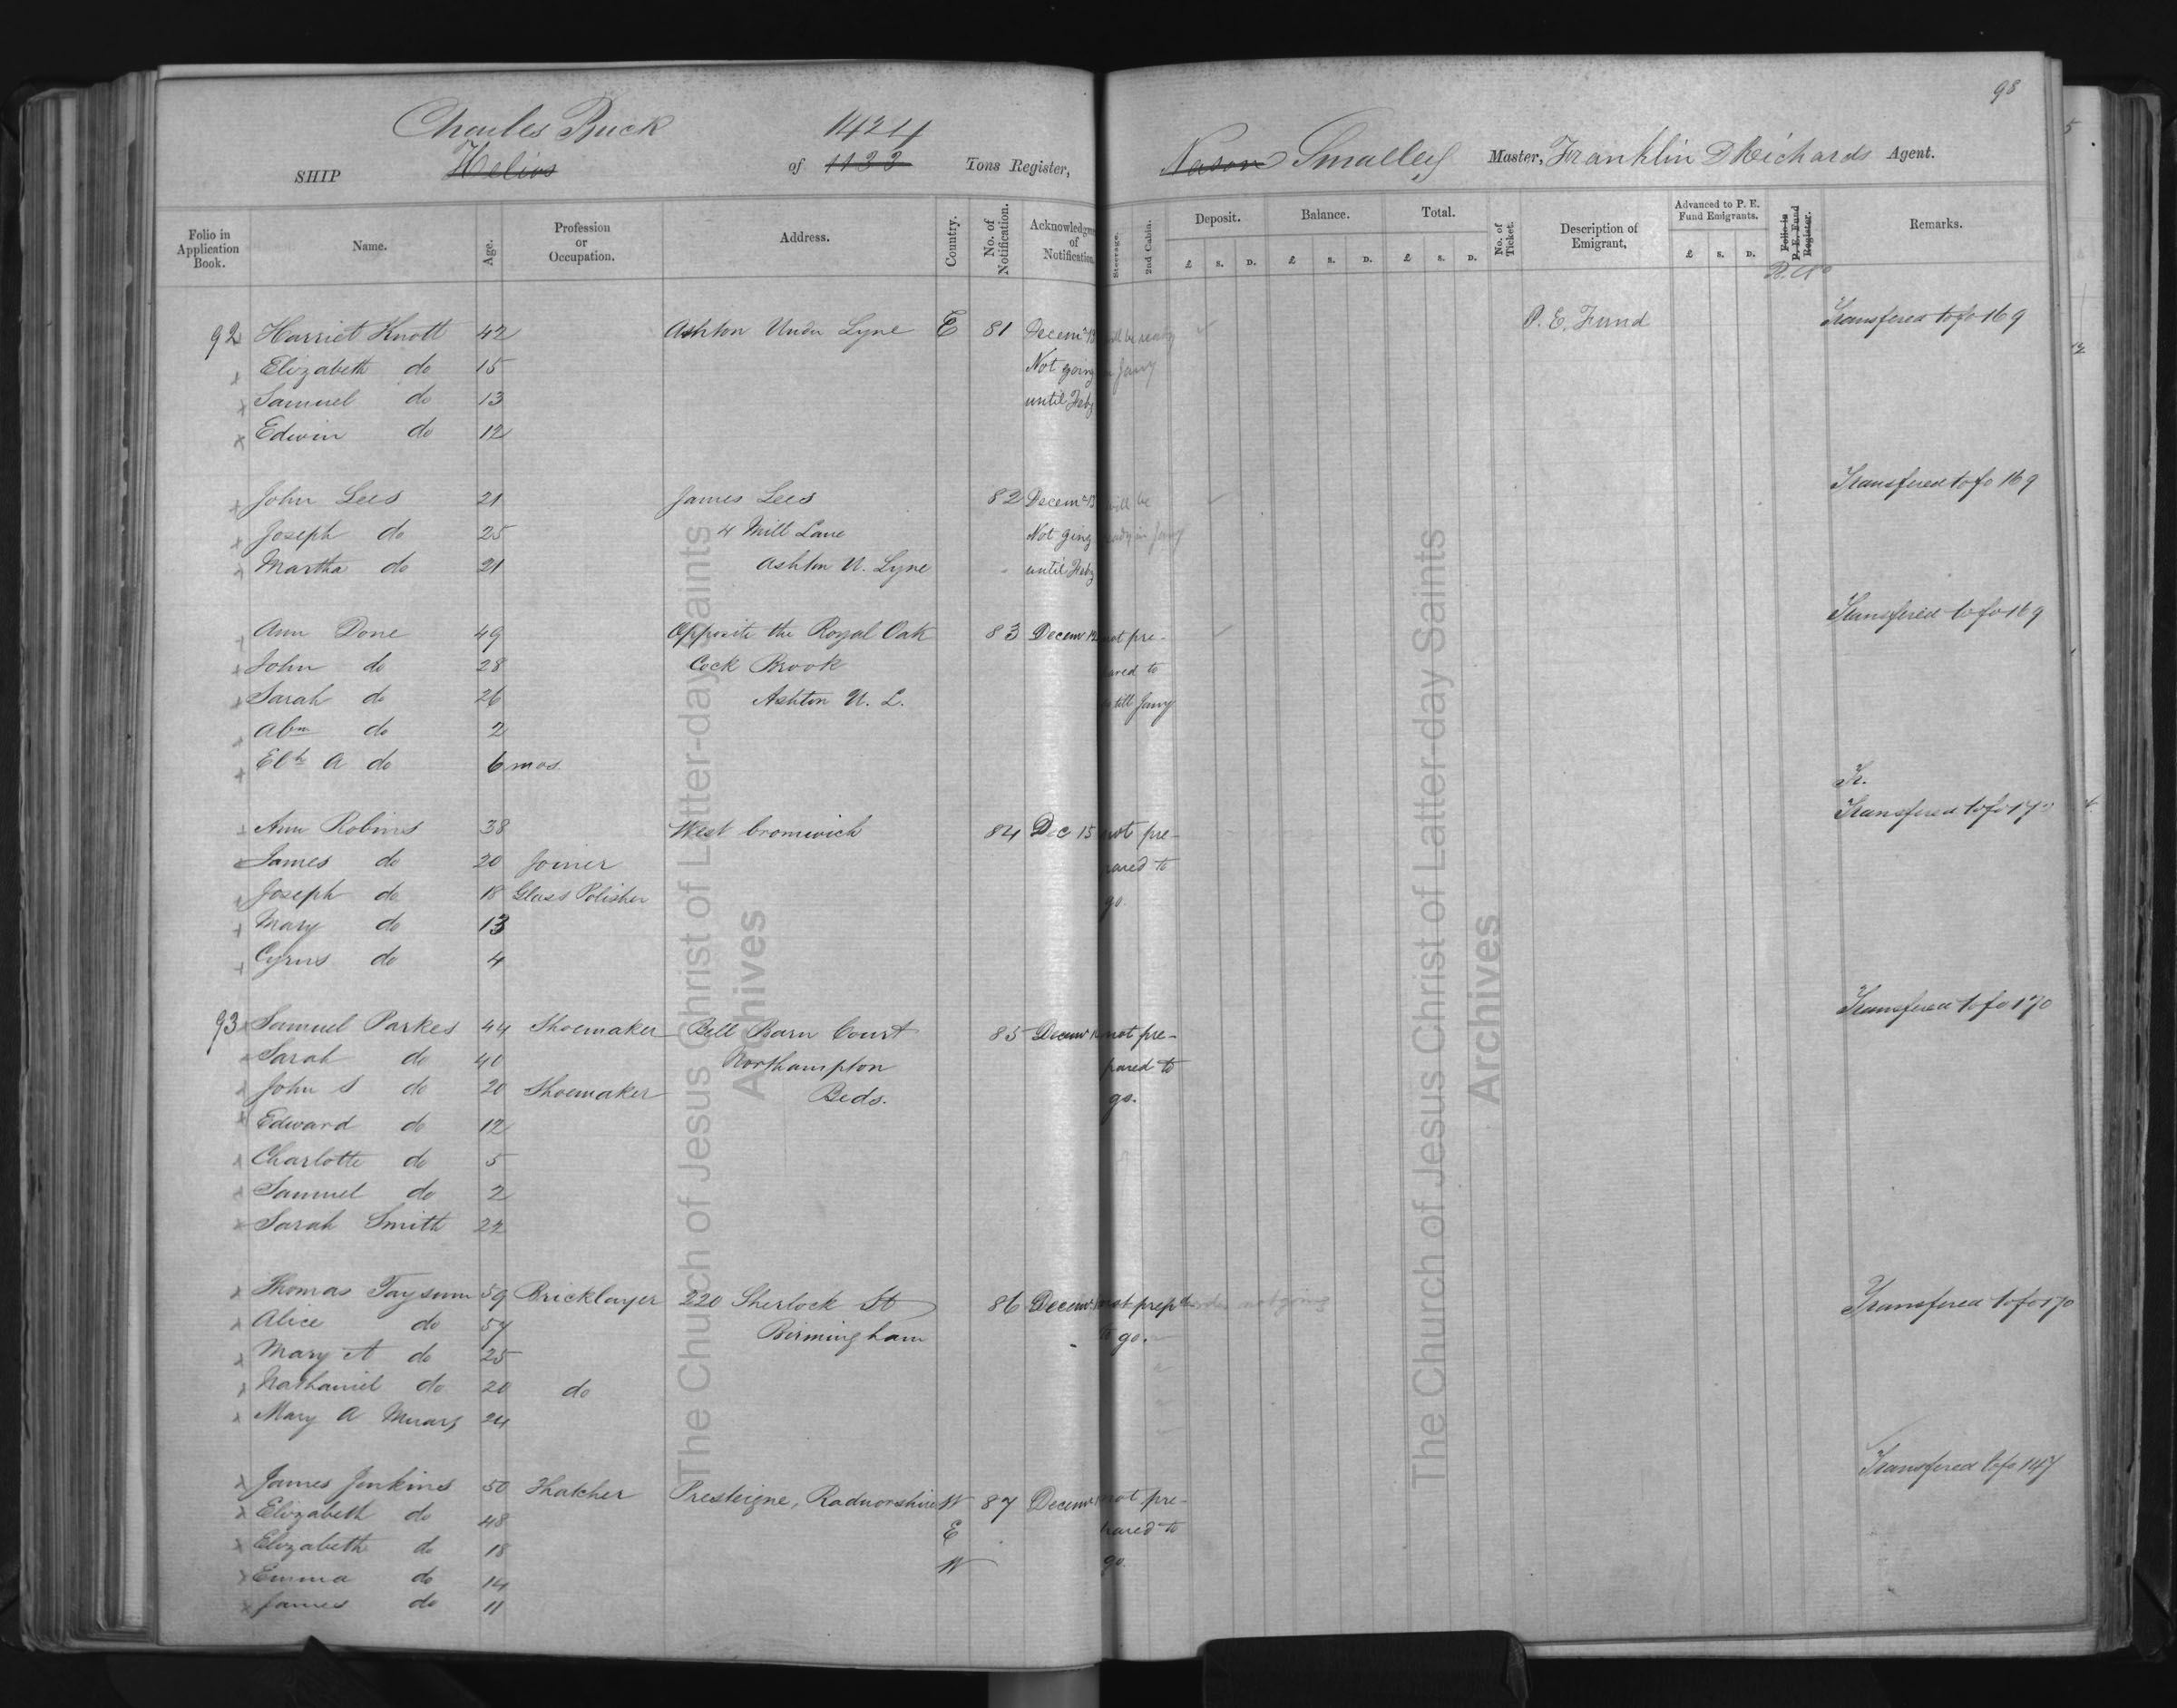 98
Charles Buck 1424
SHIP Helios of 1133 Tons Register, Nason Smalley Master, Franklin D Richards Agent.
Folio in Application Book. Name. Age. Profession or Occupation. Address. Country. No. of Notification. Acknowledgment of Notification. Steerage. 2nd Cabin. Deposit. £ s. D. Balance. £ s. D. Total. £ s. D. No. of Ticket. Description of Emigrant, Advanced to P. E. Fund Emigrants. £ s. D. Folio in P. E. Fund Register. Remarks.
92 Harriet Knott 42 Ashton Under Lyne E 81 Decemr 13 will be ready P. E. Fund Transfered to fo 169
Elizabeth do 15 Not going in Jany
Samuel do 13 until Feby
Edwin do 12
John Lees 21 James Lees 82 Decemr 13 will be Transfered to fo 169
Joseph do 25 4 Mill Lane Not going ready in Jany
Martha do 21 Ashton U. Lyne until Feby
Ann Done 49 Opposite the Royal Oak 83 Decemr 12 not pre- Transfered to fo 169
John do 28 Cock Brook pared to
Sarah do 26 Ashton U. L. go till Jany
Abm do 2
Elth A do 6 mos.
Tr.
Ann Robins 38 West bromwich 84 Dec 15 not pre- Transfered to fo 170
James do 20 Joiner pared to
Joseph do 18 Glass Polisher go.
Mary do 13
Cyrus do 4
93 Samuel Parkes 44 Shoemaker Bell Barn Court 85 Decemr not pre- Transfered to fo 170
Sarah do 40 Northampton pared to
John S do 20 Shoemaker Beds. go.
Edward do 12
Charlotte do 5
Samuel do 2
Sarah Smith 22
Thomas Taysum 59 Bricklayer 220 Sherlock St 86 Decemr not prepd not going Transfered to fo 170
Alice do 57 Birmingham to go.
Mary A do 25
Nathaniel do 20 do
Mary A 24
James Jenkins 50 Thatcher Presteigne, Radnorshire W 87 Decemr not pre- Transfered to fo 147
Elizabeth do 48 E pared to
Elizabeth do 18 W go.
Emma do 14
James do 11
The Church of Jesus Christ of Latter-day Saints
Archives
The Church of Jesus Christ of Latter-day Saints
Archives